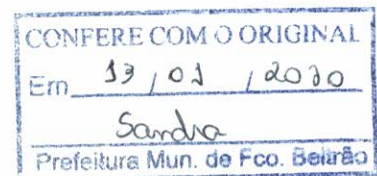 CONFERE COM O ORIGINAL
Em 13 / 01 / 2020
Sandra
Prefeitura Mun. de Fco. Beltrão